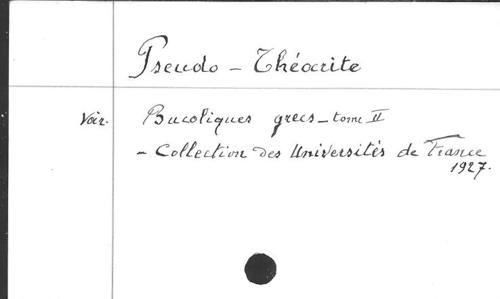 Pseudo - Théocrite
Voir. Bucoliques grecs - tome II
- Collection des Universités de France
1927.